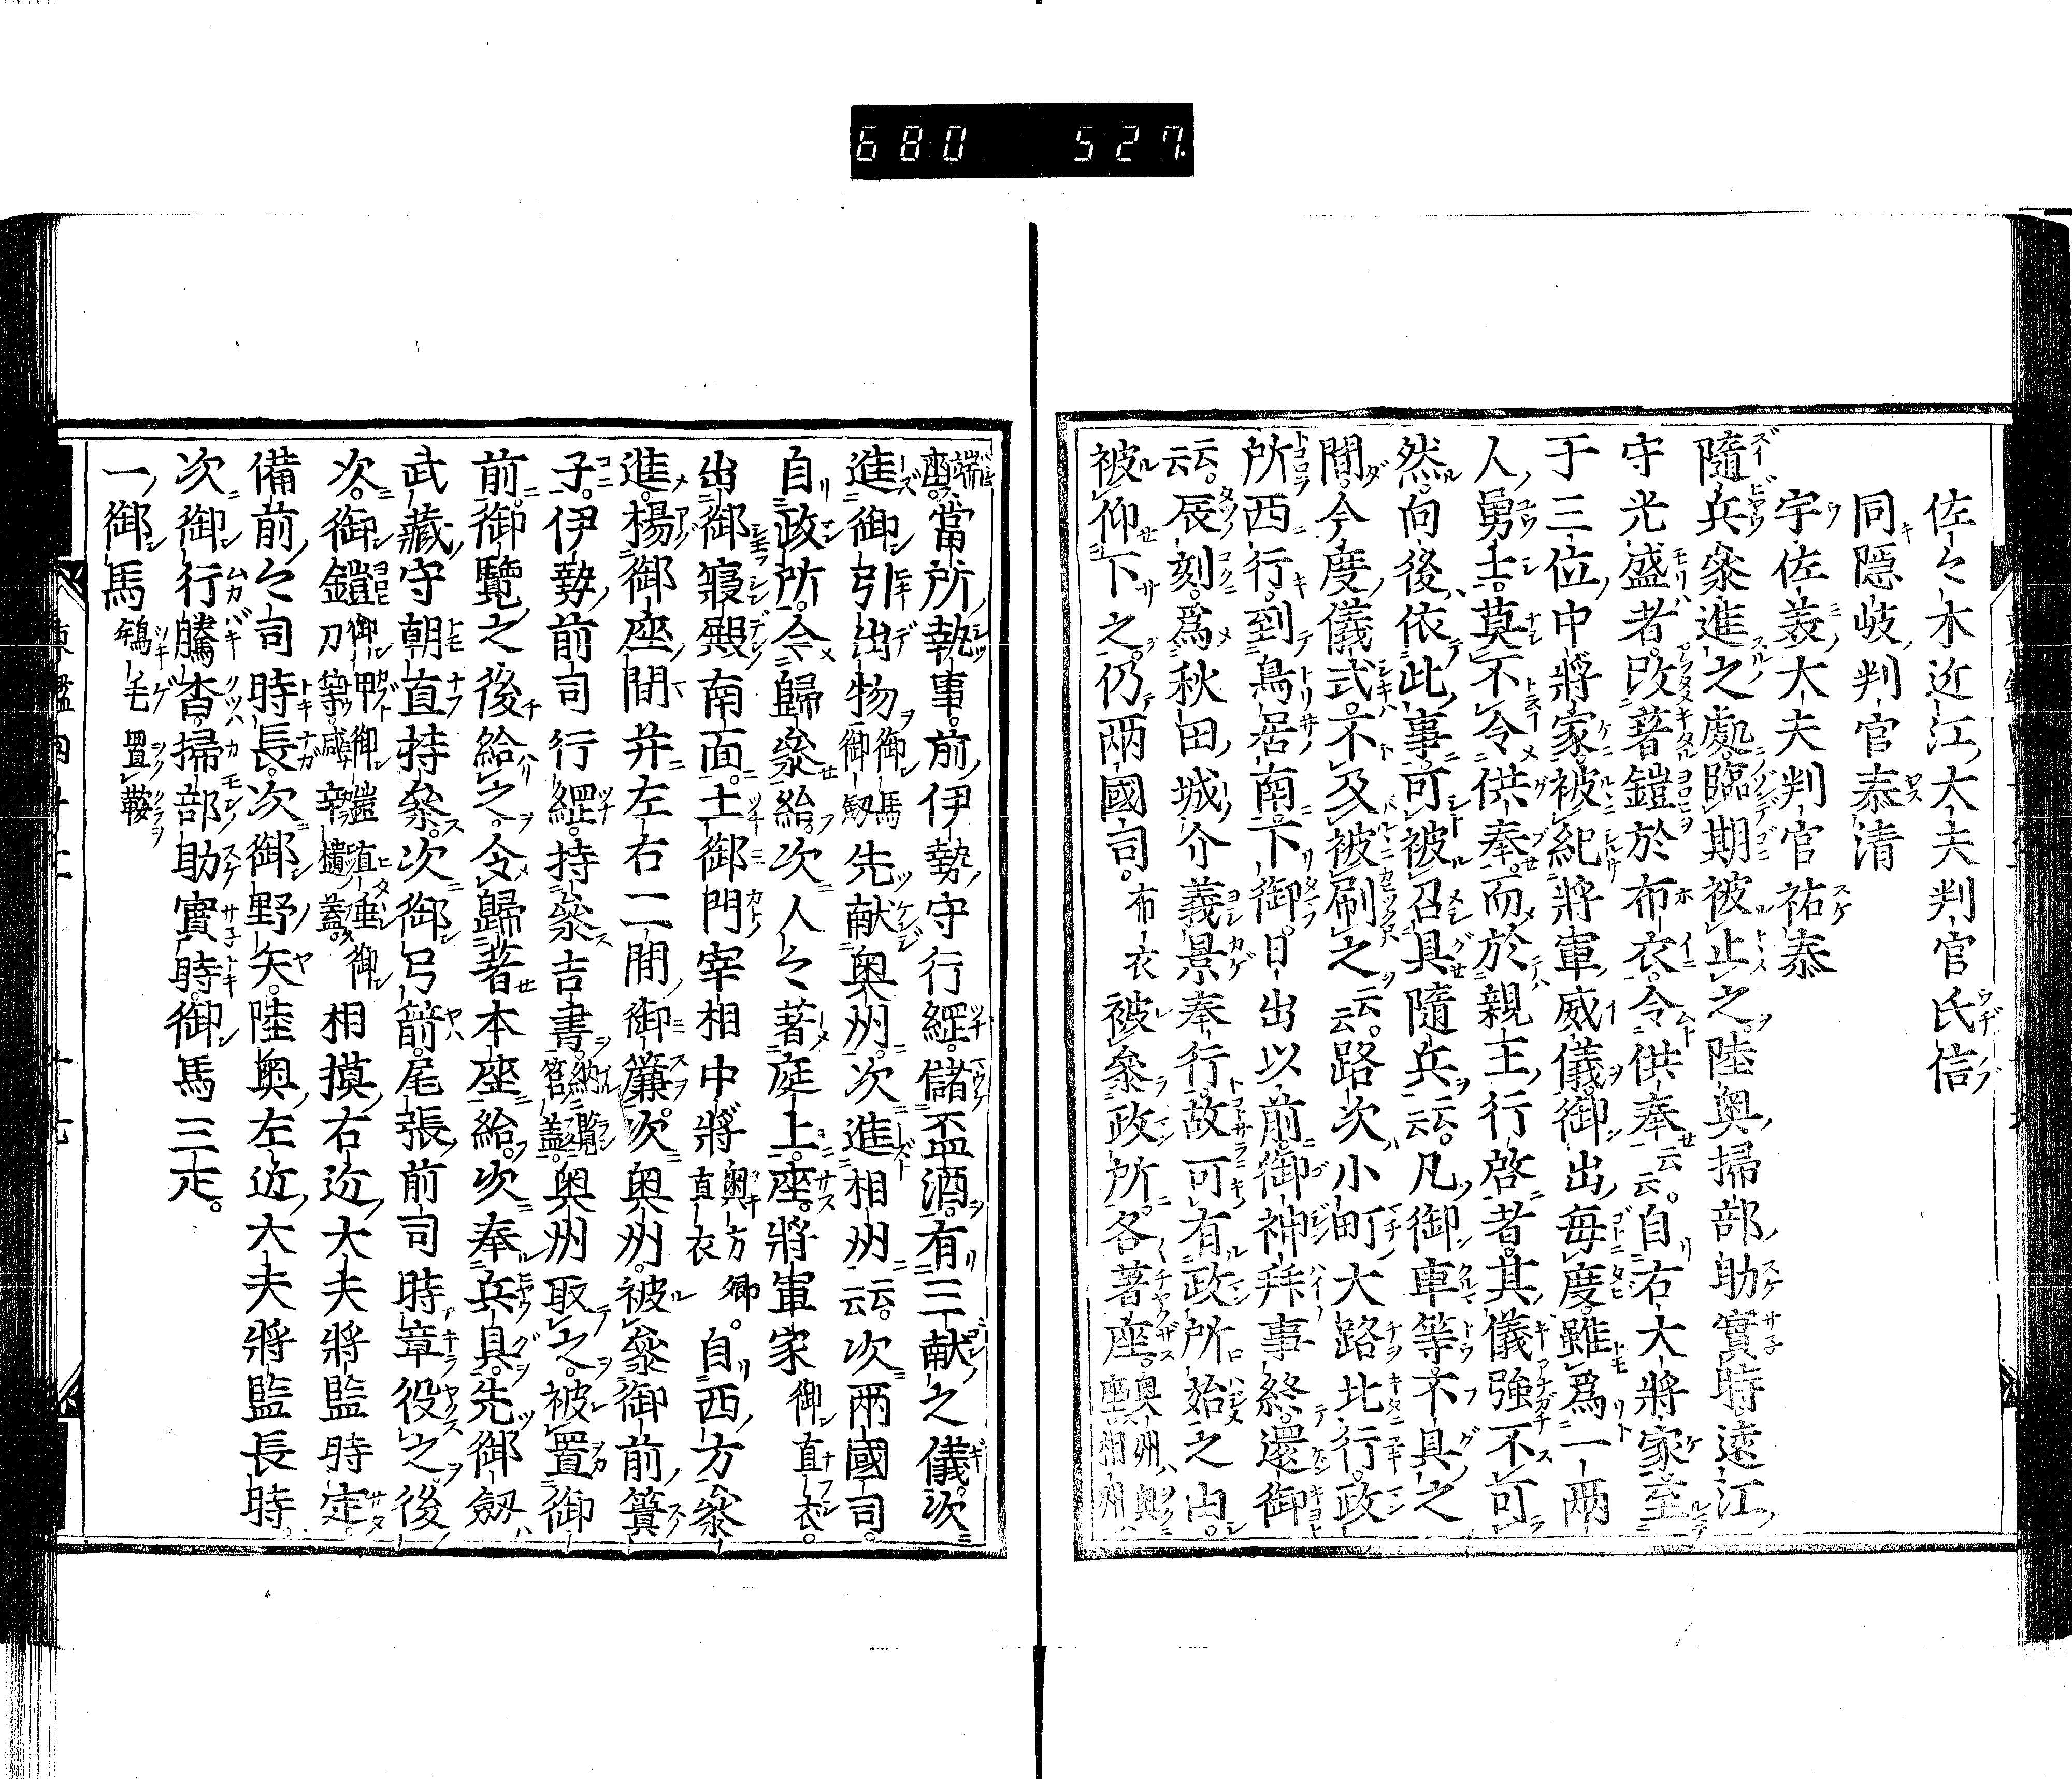 680 527
佐々木近江大夫判官氏信
同隠岐判官泰清
宇佐羙大夫判官祐泰
隨兵參進之處臨期被止之陸奥掃部助實時遠江
守光盛者改著鎧於布衣令供奉云云自右大將家至
于三位中將家被紀將軍威儀御出毎度雖爲一兩
人勇士莫不令供奉而於親王行啓者其儀強不可
然向後依此事可被召具隨兵云云凡御車等不具之
間今度儀式不及被刷之云云路次小町大路北行政
所西行到鳥居南下御日出以前御神拜事終還御
云云辰刻爲秋田城介義景奉行故可有政所始之由
被仰下之仍兩國司布衣被參政所各著座奥州奥座相州
端座當所執事前伊勢守行經儲盃酒有三献之儀次
進御引出物御馬御劔先献奥州次進相州云云次兩國司
自政所令歸參給次人々著庭上座將軍家御直衣
出御寢殿南面土御門宰相中將奥方直衣卿自西方參
進楊御座間并左右二間御簾次奥州被參御前簀
子伊勢前司行經持參吉書納覽筥蓋奥州取之被置御
前御覽之後給之令歸著本座給次奉兵具先御劔
武藏守朝直持參次御弓箭尾張前司時章役之後
次御鎧御甲御鎧直垂御刀等咸辛櫃蓋相摸右近大夫將監時定
備前々司時長次御野矢陸奥左近大夫將監長時
次御行騰沓掃部助實時御馬三疋
一御馬鴾毛置鞍